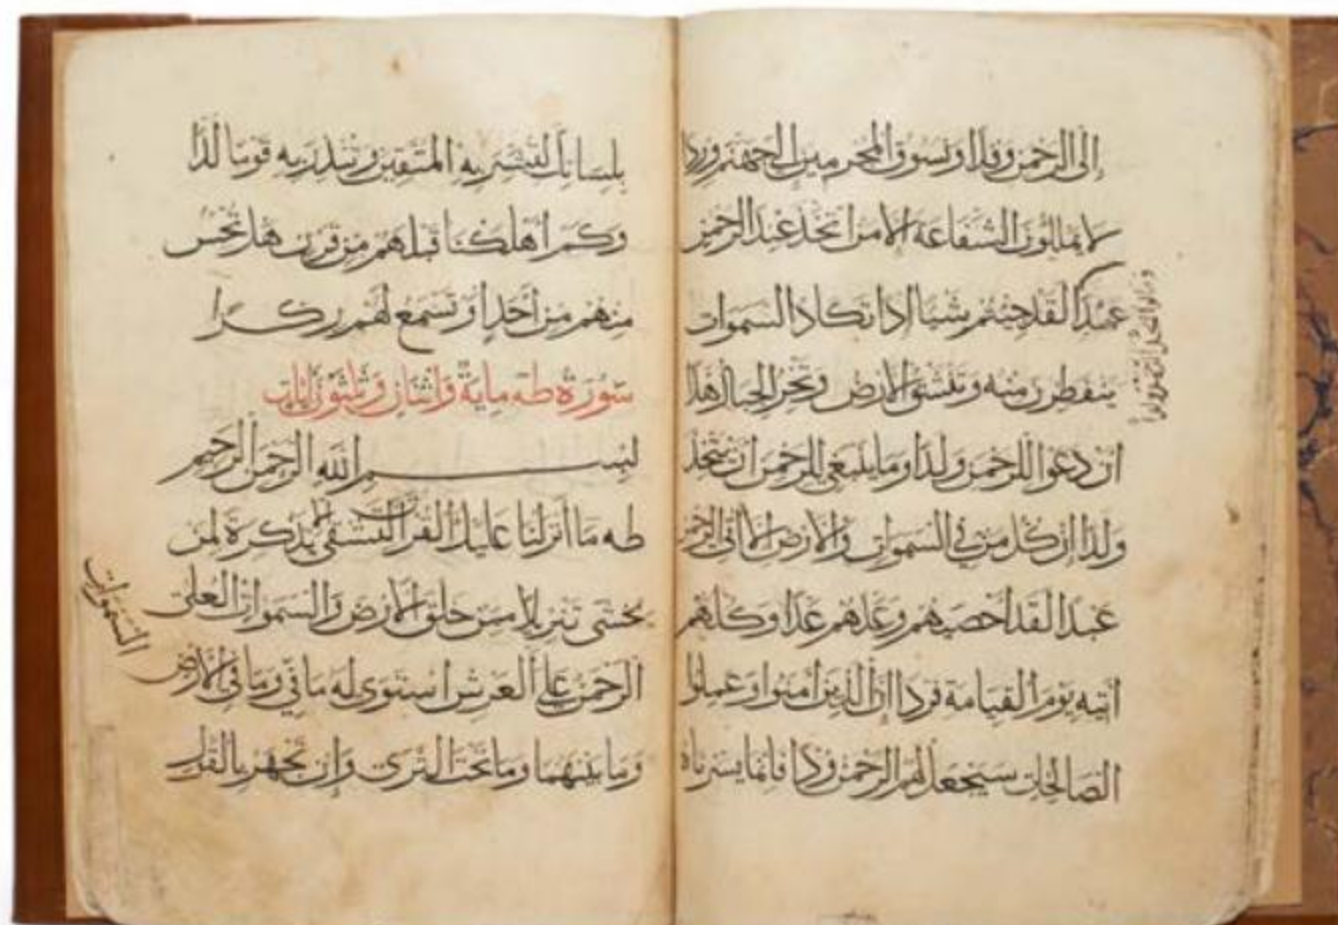 إلى الرحمن وفدا ونسوق المجرمين إلى جهنم وردا
لا يملكون الشفاعة إلا من اتخذ عند الرحمن
عهدا لقد جئتم شيئا إدا تكاد السموات
وقالوا اتخذ الرحمن ولدا
يتفطرن منه وتنشق الارض وتخر الجبال هدا
ان دعوا للرحمن ولدا وما ينبغي للرحمن ان يتخذ
ولدا إن كل من في السموات والارض الا اتى الرحمن
عبدا لقد احصيهم وعدهم عدا وكلهم
اتيه يوم القيامة فردا إن الذين امنوا وعملوا
الصالحات سيجعل لهم الرحمن ودا فانما يسرناه
بلسانك لتبشر به المتقين وتنذر به قوما لدا
وكم اهلكنا قبلهم من قرن هل تحس
منهم من احد او تسمع لهم ركزا
سورة طه ماية واثنان وثلثون ايات
بسم الله الرحمن الرحيم
طه ما انزلنا عليك القران لتشقى تذكرة لمن
يخشى تنزيلا ممن خلق الارض والسموات العلى
الرحمن على العرش استوى له ما في وما في الارض
السموات
وما بينهما وما تحت الثرى وإن تجهر بالقول